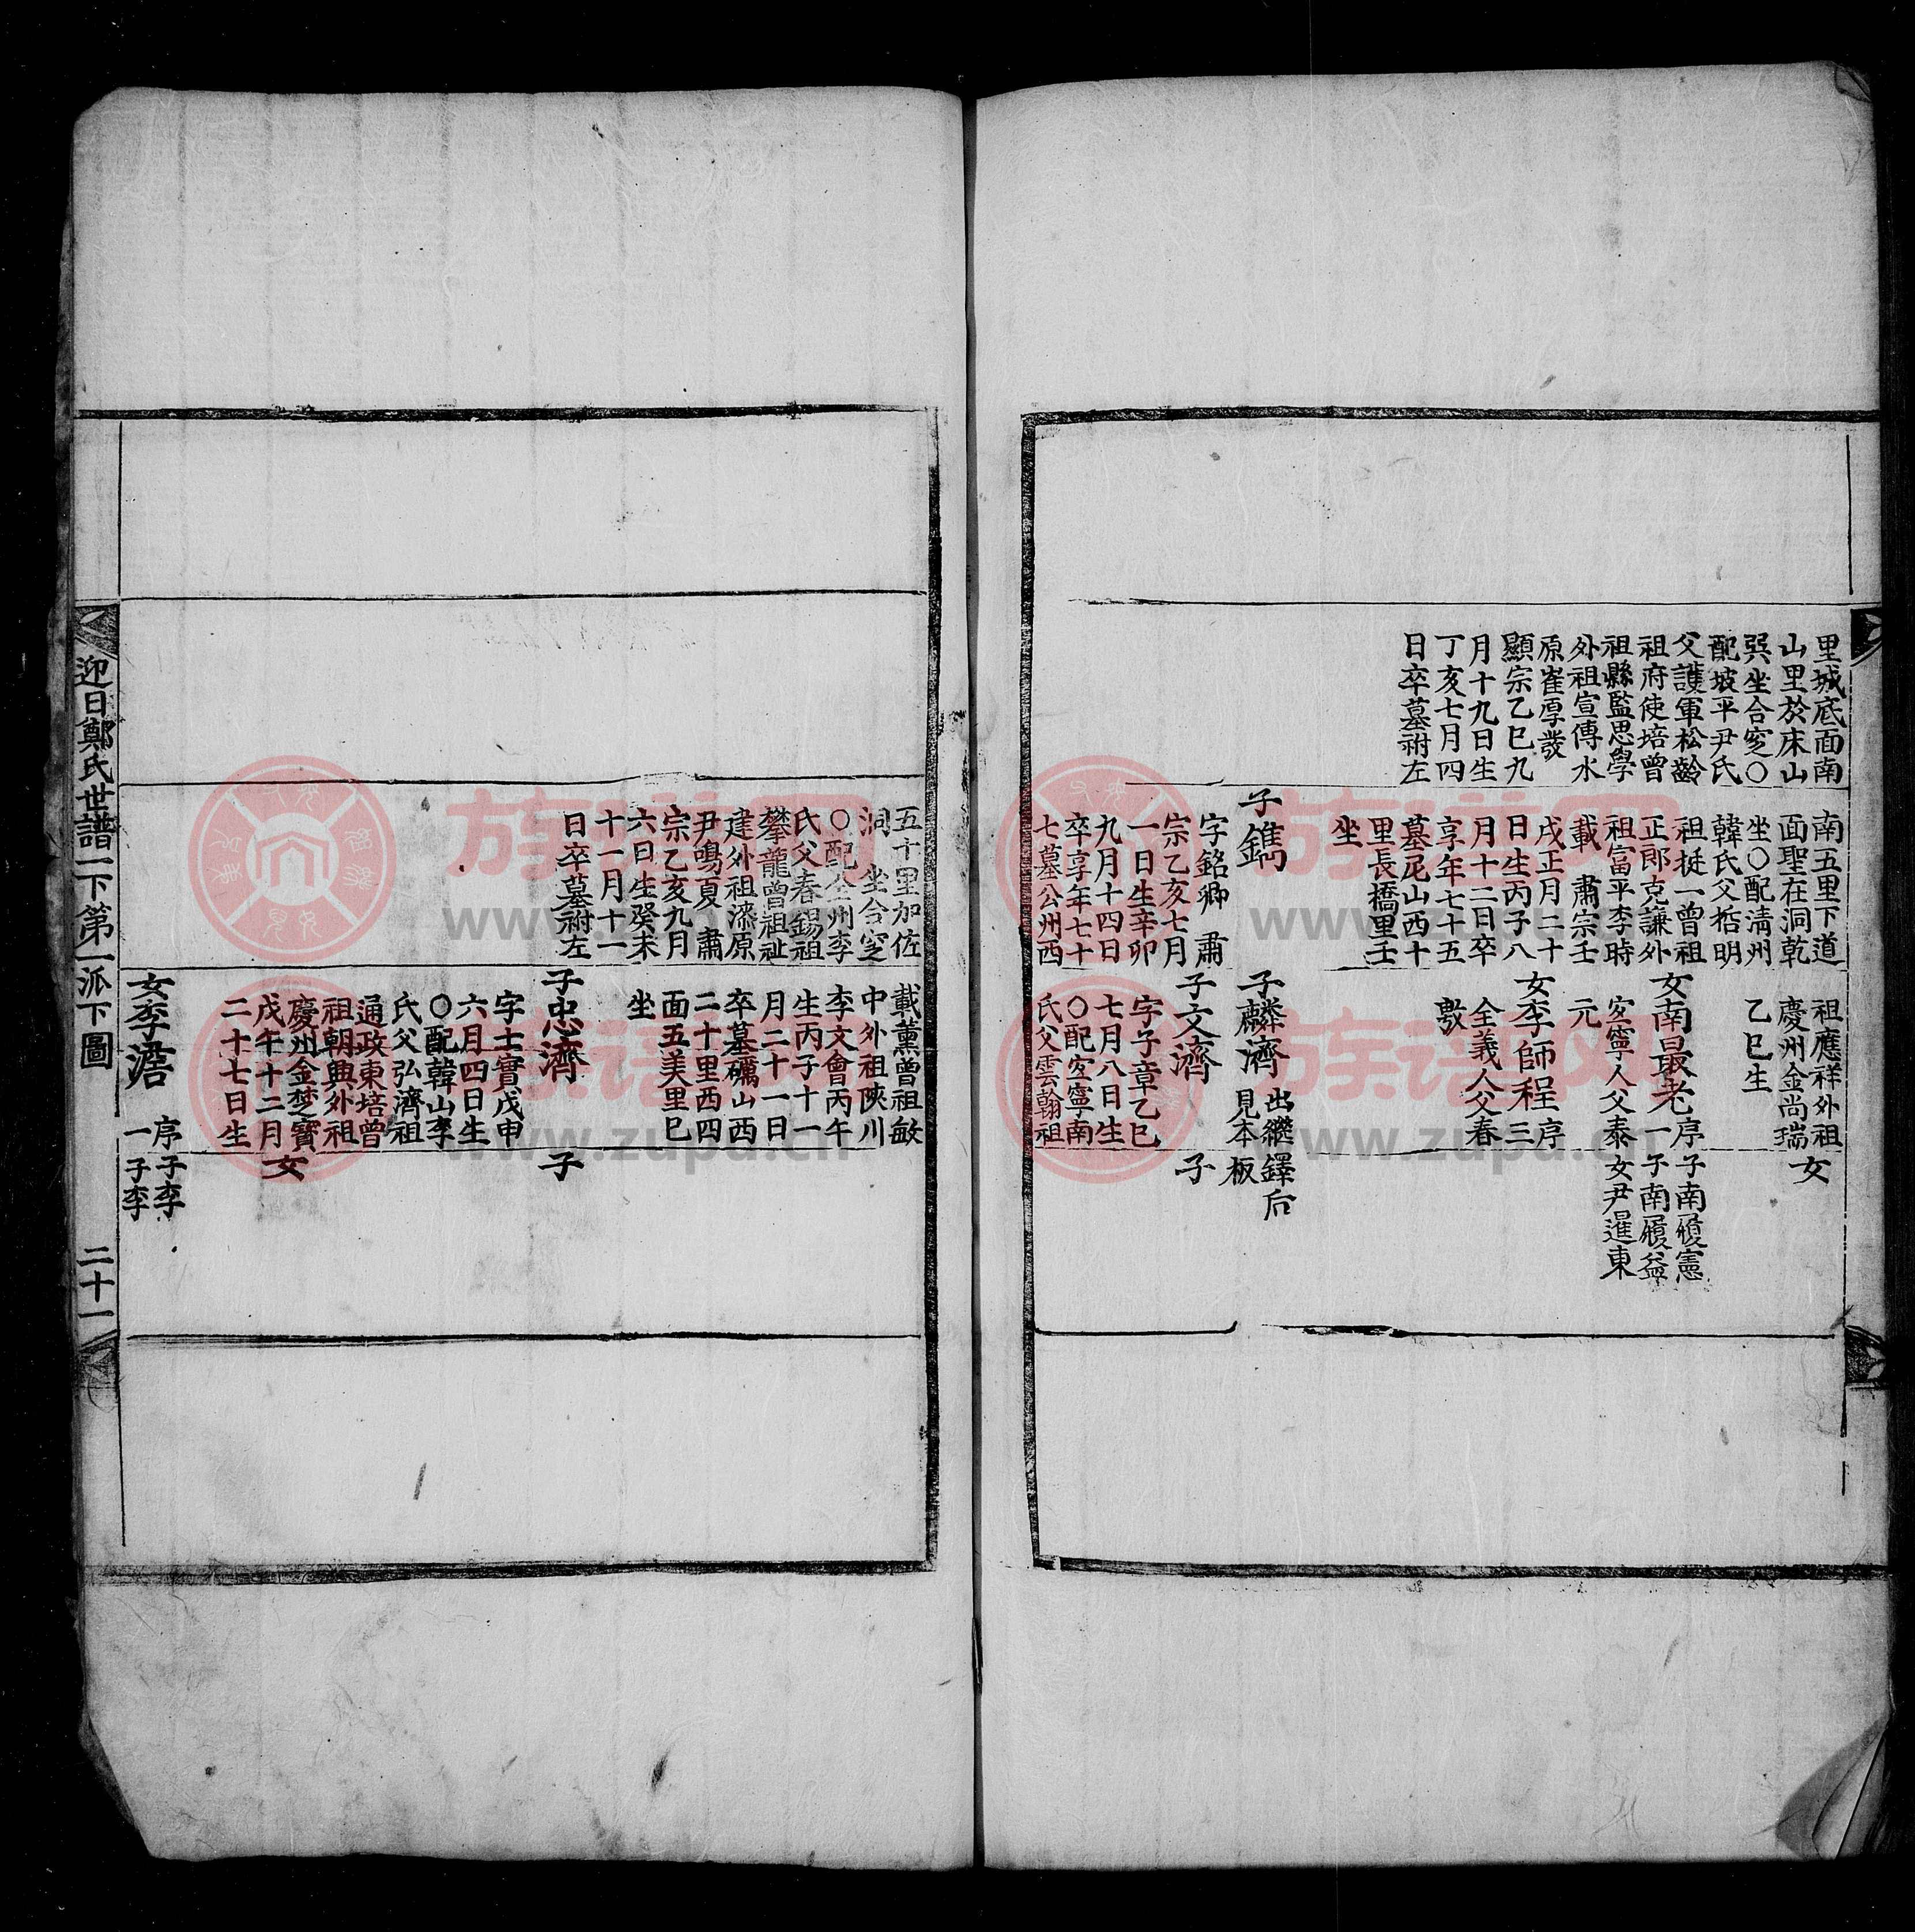 里城底面南
山里於床山
巽坐合窆○
配坡平尹氏
父護軍松齡
祖府使培曾
祖縣監思學
外祖宣傳水
原崔厚發
顯宗乙巳九
月十九日生
丁亥七月四
日卒墓祔左
南五里下道
面聖在洞乾
坐○配淸州
韓氏父栝明
祖挺一曾祖
正郎克謙外
祖富平李時
載 肅宗壬
戌正月二十
日生丙子八
月十二日卒
享年七十五
墓尼山西十
里長橋里壬
坐
子鐫
字銘卿 肅
宗乙亥七月
一日生辛卯
九月十四日
卒享年七十
七墓公州西
祖應祥外祖
慶州金尚瑞
乙巳生
女南最老序一
安寧人父泰
元
女李師程序三
全義人父春
敷
子麟濟 出繼鐸后
見本板
子文濟
字子章乙巳
七月八日生
○配安寧南
氏父雲翰祖
女
子南履憲
子南履益
女尹暹東
子
五十里加佐
洞 坐合窆
○配全州李
氏父春錫祖
攀龍曾祖祉
建外祖漆原
尹鳴夏 肅
宗乙亥九月
六日生癸未
十一月十一
日卒墓祔左
載薰曾祖敏
中外祖陜川
李文會丙午
生丙子十一
月二十一日
卒墓礪山西
二十里西四
面五美里巳
坐
子忠濟
字士實戊申
六月四日生
○配韓山李
氏父弘濟祖
通政東培曾
祖朝興外祖
慶州金楚寶
戊午十二月
二十七日生
女李澔 序一
子
女
子李
子李
迎日鄭氏世譜一下第一派下圖 二十一
族谱网
www.zupu.cn
族谱网
www.zupu.cn
族谱网
www.zupu.cn
族谱网
www.zupu.cn